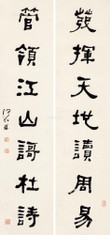 發揮天地讀周易
管領江山謌杜詩